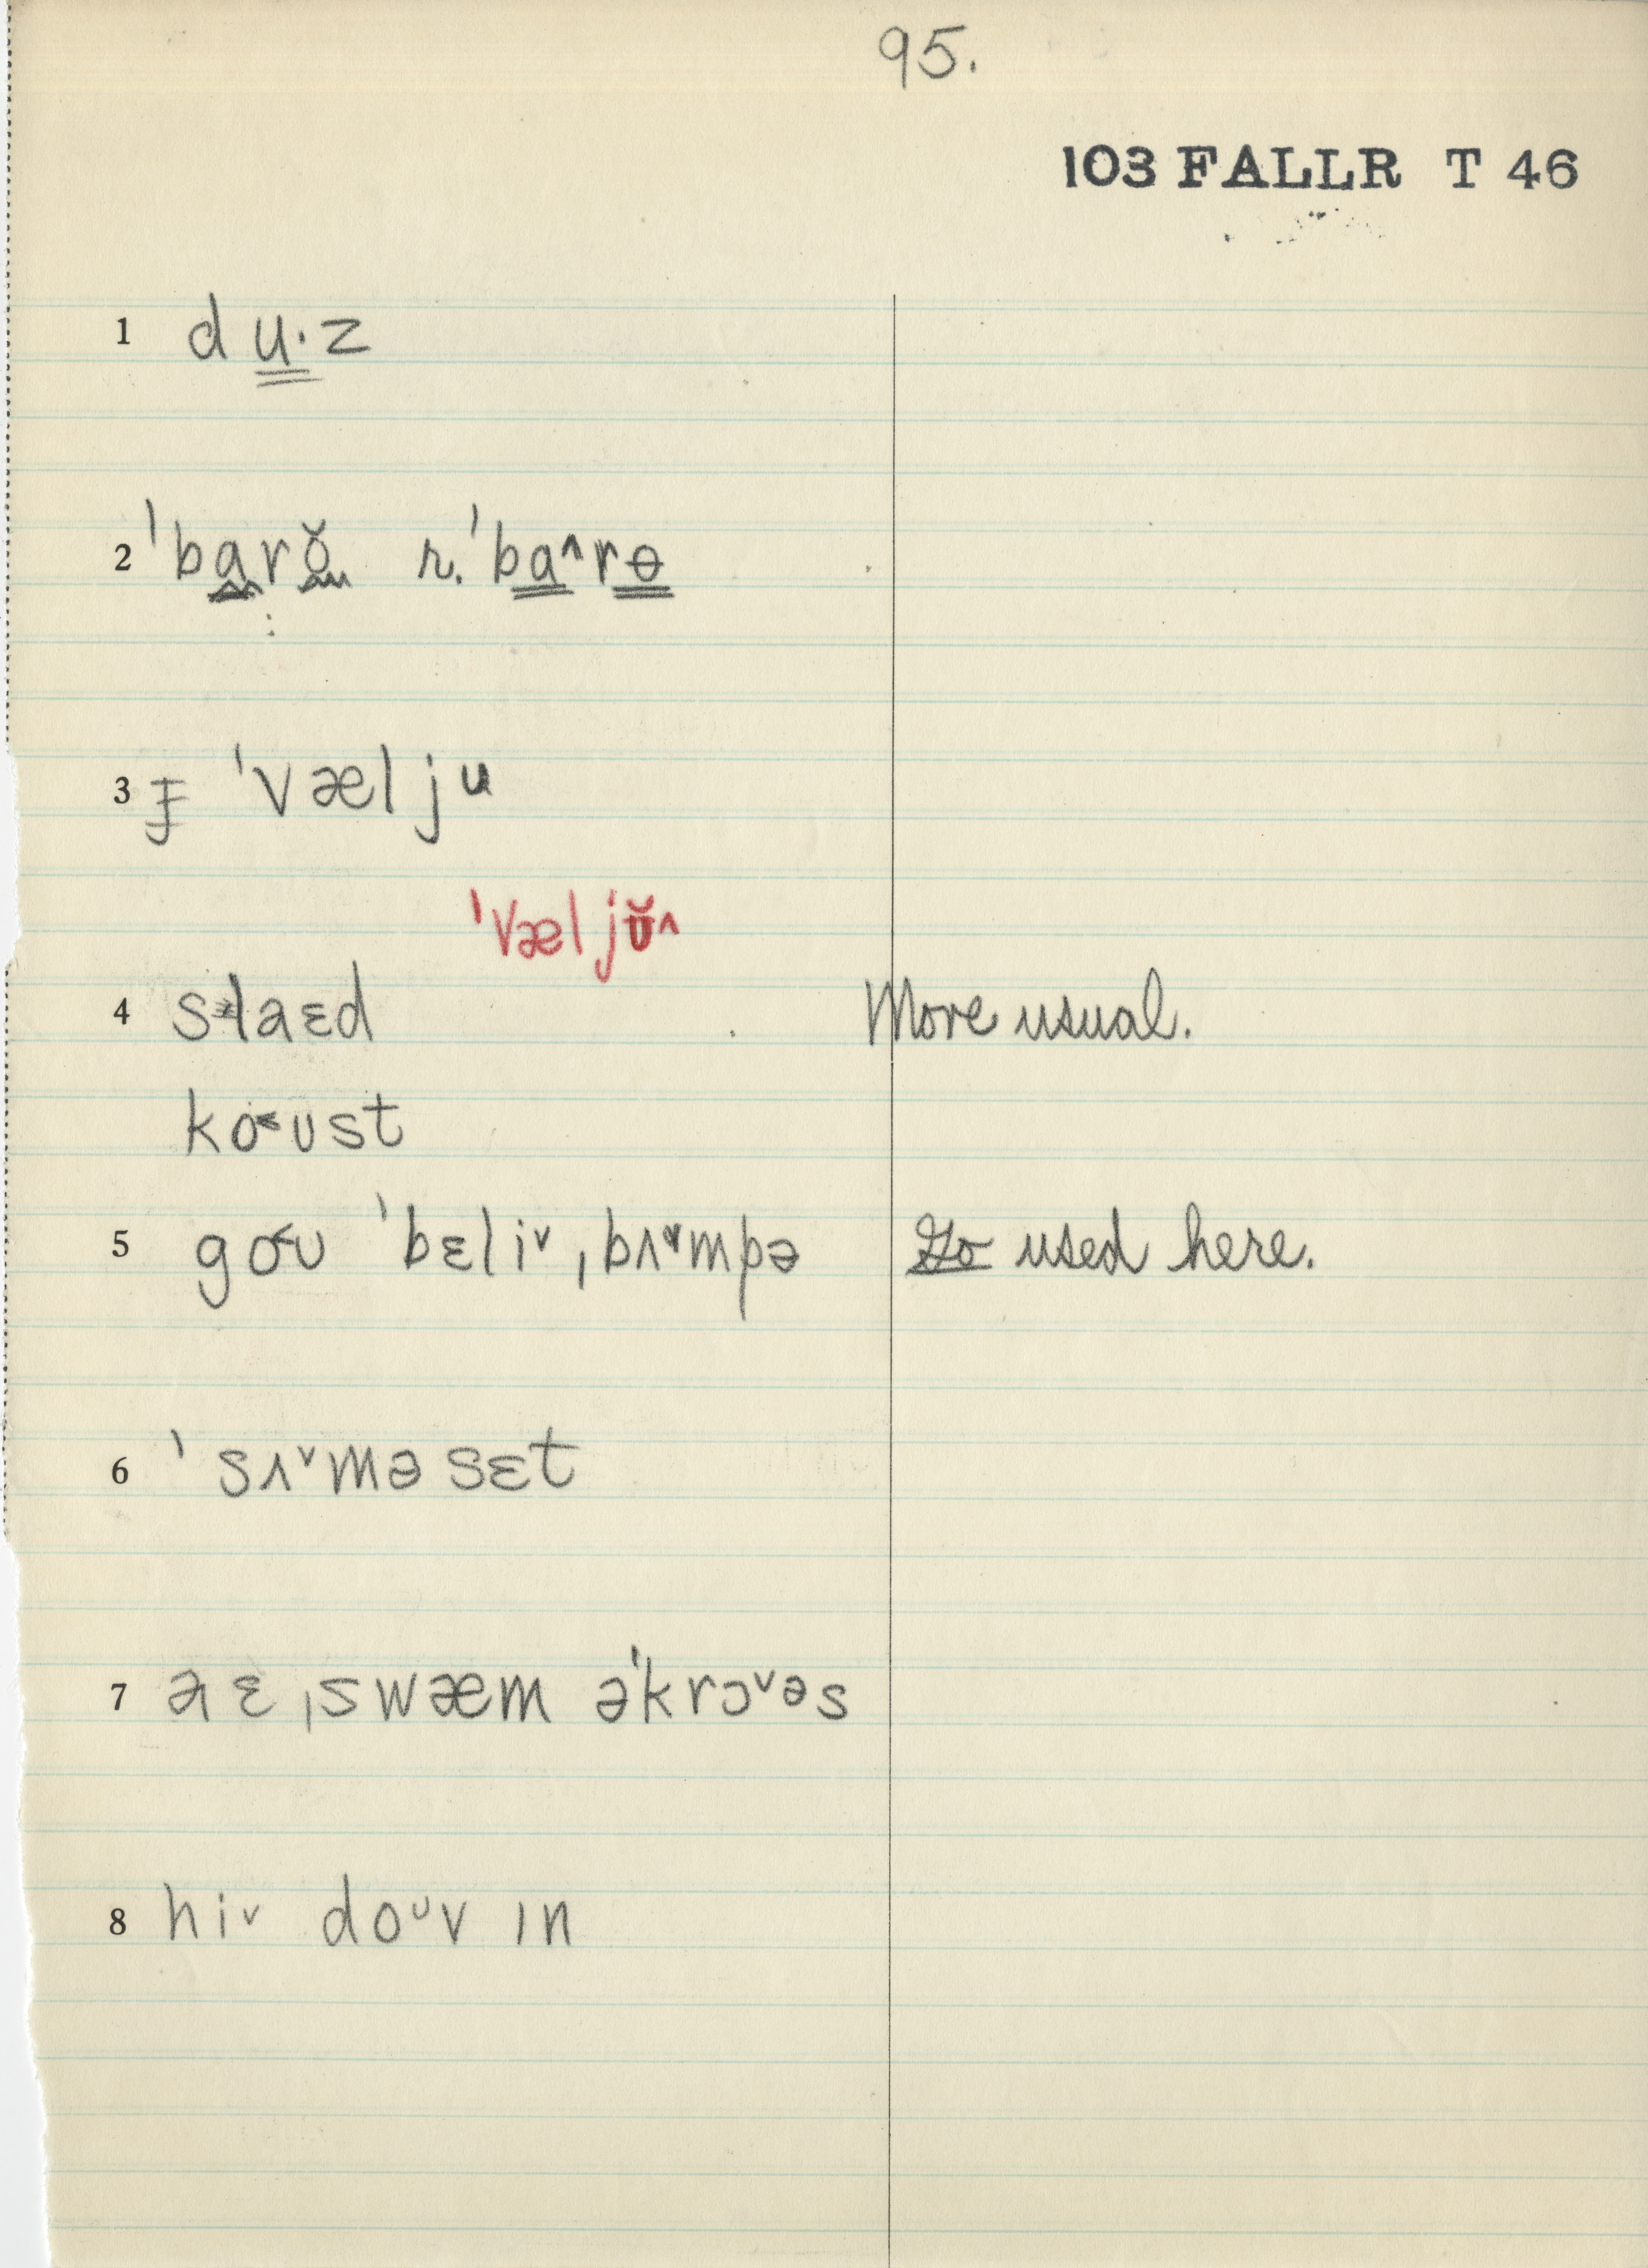 95.
103 FALLR T 46
1 du·z
2 ˈbarŏ r. ˈba^rɵ
3 ƒ ˈvæljᵘ
ˈvæljʊ̆^
4 slaɛd More usual.
ko˂ust
5 go˂ʊ ˈbɛliᵛ ˌbʌᵛmpə Go used here.
6 ˈsʌᵛməsɛt
7 aɛ ˌswæm əˈkrɔᵛᵊs
8 hiᵛ doᶸv ɪn